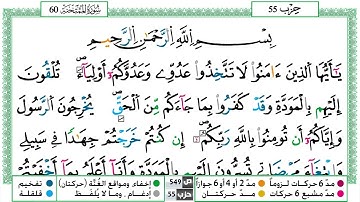 60 سُورَةُ المُمْتَحنَة
حِزْب 55
بِسْمِ اللَّهِ الرَّحْمَٰنِ الرَّحِيمِ
يَٰٓأَيُّهَا الَّذِينَ ءَامَنُوا لَا تَتَّخِذُوا عَدُوِّى وَعَدُوَّكُمُۥٓ أَوْلِيَآءَ تُلْقُونَ
إِلَيْهِم بِالْمَوَدَّةِ وَقَدْ كَفَرُوا بِمَا جَآءَكُم مِّنَ الْحَقِّ يُخْرِجُونَ الرَّسُولَ
وَإِيَّاكُمُۥٓ أَن تُومِنُوا بِاللَّهِ رَبِّكُمُۥٓ إِن كُنتُمْ خَرَجْتُمْ جِهَٰدًا فِي سَبِيلِي
وَابْتِغَآءَ مَرْضَاتِي تُسِرُّونَ إِلَيْهِم بِالْمَوَدَّةِ وَأَنَآ أَعْلَمُ بِمَآ أَخْفَيْتُمْ
مدّ 6 حركات لزوماً مدّ 2 أو 4 أو 6 جوازاً ص 549 إخفاء، ومواقع الغُنَّة (حركتان) تفخيم
مدّ مشبع 6 حركات مدّ حركتان حزب 55 إدغام، وما لا يُلفَظ قلقلة